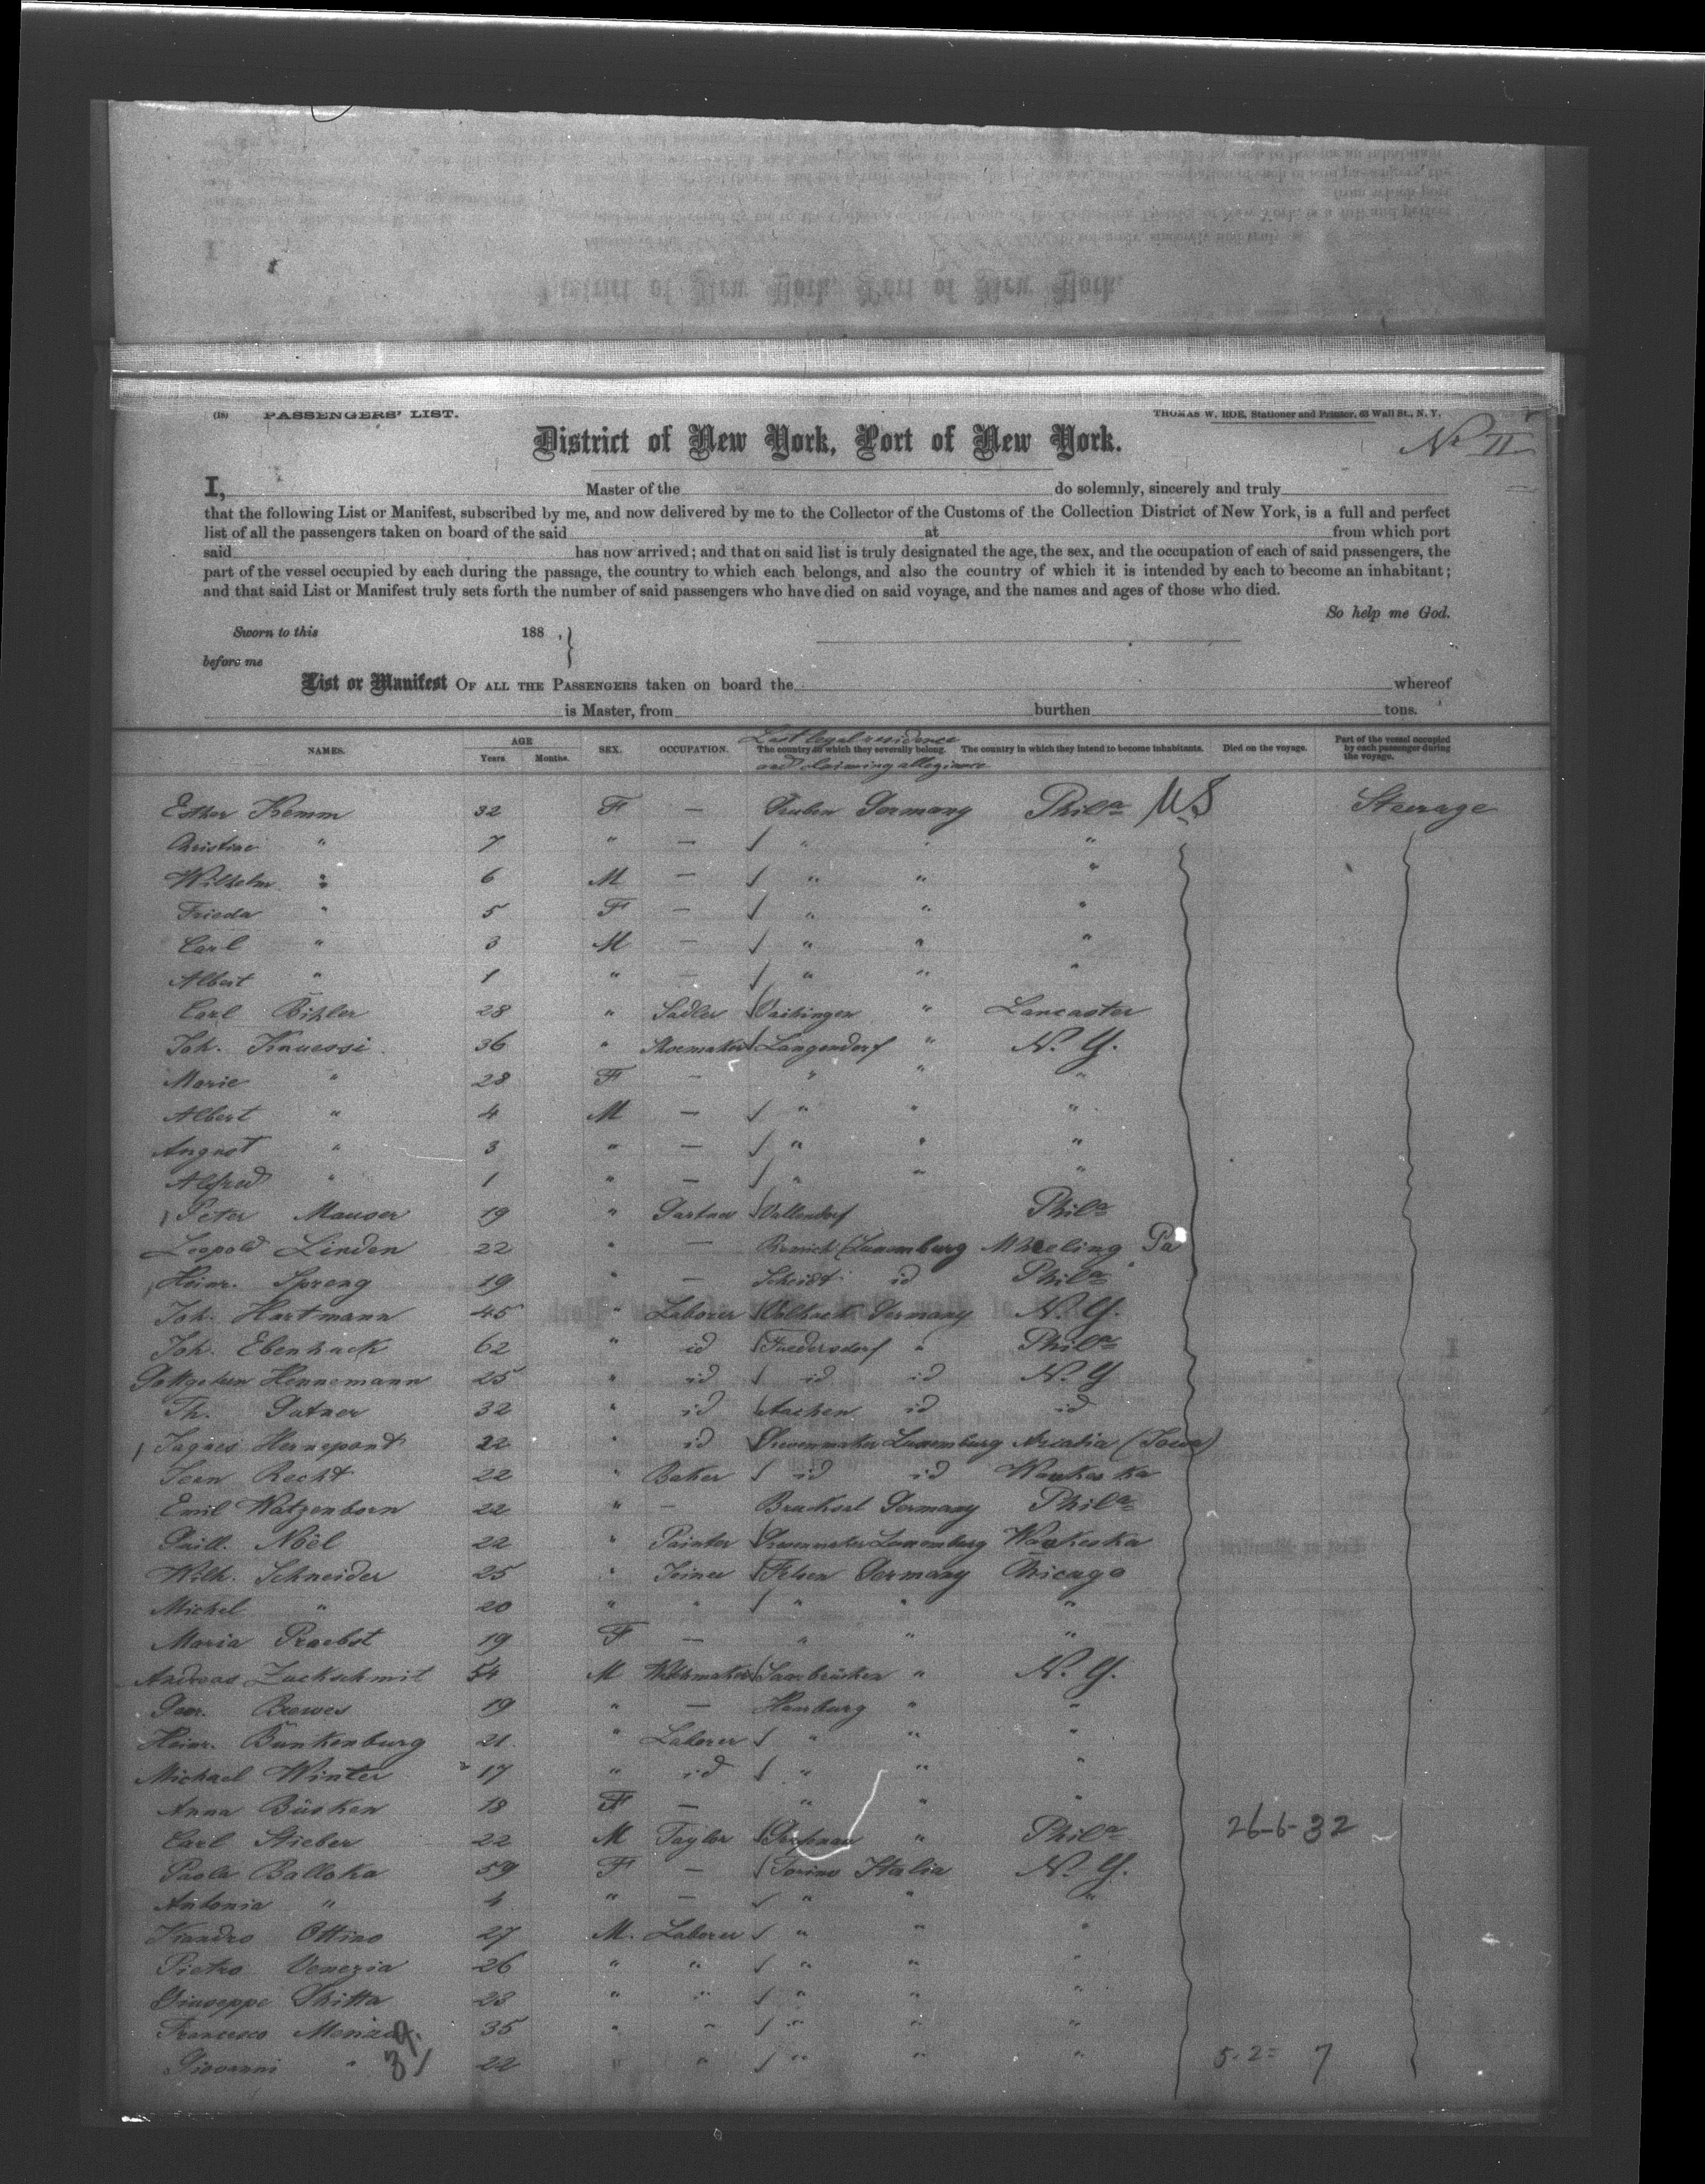 (18) PASSENGERS' LIST. THOMAS W. ROE, Stationer and Printer, 63 Wall St., N. Y.
District of New York, Port of New York. No II
I, Master of the do solemnly, sincerely and truly
that the following List or Manifest, subscribed by me, and now delivered by me to the Collector of the Customs of the Collection District of New York, is a full and perfect
list of all the passengers taken on board of the said at from which port
said has now arrived; and that on said list is truly designated the age, the sex, and the occupation of each of said passengers, the
part of the vessel occupied by each during the passage, the country to which each belongs, and also the country of which it is intended by each to become an inhabitant;
and that said List or Manifest truly sets forth the number of said passengers who have died on said voyage, and the names and ages of those who died.
So help me God.
Sworn to this 188 , }
before me
List or Manifest OF ALL THE PASSENGERS taken on board the whereof
is Master, from burthen tons.
Last legal residence
NAMES. AGE Years. Months. SEX. OCCUPATION. The country to which they severally belong. The country in which they intend to become inhabitants. Died on the voyage. Part of the vessel occupied by each passenger during the voyage.
and claiming allegiance
Esther Kemm 32 F — Germany Phila US Steerage
Christine " 7 " — " " "
Wilhelm " 6 M — " " "
Frieda " 5 F — " " "
Carl " 3 M — " " "
Albert " 1 " — " " "
Carl 28 " Sadler Vaihingen " Lancaster
Joh. Knuessi 36 " Shoemaker Langendorf " N. Y.
Marie " 28 F — " " "
Albert " 4 M — " " "
August " 3 " — " " "
Alfred " 1 " — " " "
Peter Mauser 19 " Vallendorf Phila
Leopold Linden 22 " — Remich (Luxemburg Wheeling Pa
Heinr. Spreng 19 " — Scheidt id Phila
Joh. Hartmann 45 " Laborer Volkach Germany N. Y.
Joh. Ebenhack 62 " id Fredersdorf " Phila
Hennemann 25 " id id id N. Y
Th. 32 " id Aachen id id
22 " id Luxemburg Arcadia (Iowa)
Jean Recht 22 " Baker id id
Emil Watzenborn 22 " — Germany Phila
Noël 22 " Painter Luxemburg
Wilh. Schneider 25 " Joiner Felsen Germany Chicago
Michel " 20 " " " " "
Maria Praebst 19 F — " " "
Andreas Zuckschmit 54 M Saarbrücken " N. Y.
Brewes 19 " — Hamburg " "
Heinr. Bunkenburg 21 " Laborer " " "
Michael Winter 17 " id " " "
Anna Büsken 18 F — " " "
Carl Stieber 22 M Taylor " Phila 26-6-32
Paola Balloka 59 F — Torino Italia N. Y.
Antonia " 4 " — " " "
Ottino 27 M. Laborer " " "
Pietro Venezia 26 " " " " "
Giuseppe 23 " " " " "
Francesco 35 " " " " "
Giovanni " 39 22 " " " " " 5-2= 7